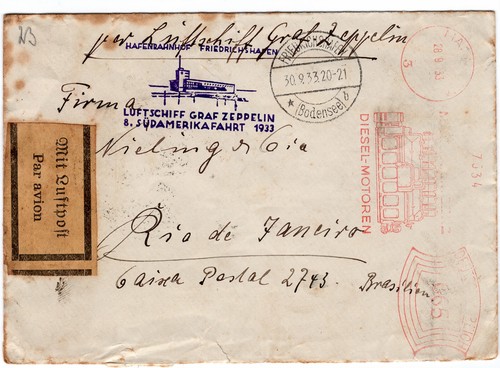 per Luftschiff Graf Zeppelin
HAFENBAHNHOF FRIEDRICHSHAFEN
LUFTSCHIFF GRAF ZEPPELIN
8. SÜDAMERIKAFAHRT 1933
FRIEDRICHSHAFEN
30.9.33.20-21
* (Bodensee) b
28.9.33
3
DIESEL-MOTOREN
Firma
Nielsung & Cia
Rio de Janeiro
Caixa Postal 2743. Brasilien
Mit Luftpost
Par avion